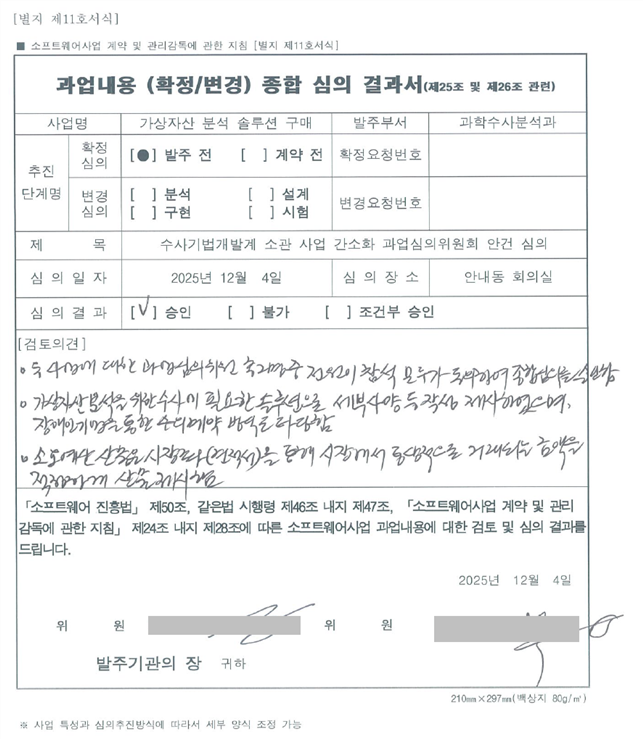 [별지 제11호서식]
■ 소프트웨어사업 계약 및 관리감독에 관한 지침 [별지 제11호서식]
과업내용 (확정/변경) 종합 심의 결과서(제25조 및 제26조 관련)
사업명 가상자산 분석 솔루션 구매 발주부서 과학수사분석과
추진 단계명
확정 심의 [●] 발주 전 [ ] 계약 전 확정요청번호
변경 심의 [ ] 분석 [ ] 설계 변경요청번호
[ ] 구현 [ ] 시험
제 목 수사기법개발계 소관 사업 간소화 과업심의위원회 안건 심의
심 의 일 자 2025년 12월 4일 심 의 장 소 안내동 회의실
심 의 결 과 [√] 승인 [ ] 불가 [ ] 조건부 승인
[검토의견]
• 대한 과업심의위원 전원이 참석 모두가
• 가상자산분석을 위한 수사에 필요한 솔루션으로 세부사양 등 작성 제시하였으며,
통한 수의계약 타당함
• 소요예산 산출은 시장조사(견적서)을 통해 시장에서 통상적으로 거래되는 금액을
적정하게 산출 제시함
「소프트웨어 진흥법」 제50조, 같은법 시행령 제46조 내지 제47조, 「소프트웨어사업 계약 및 관리
감독에 관한 지침」 제24조 내지 제28조에 따른 소프트웨어사업 과업내용에 대한 검토 및 심의 결과를
드립니다.
2025년 12월 4일
위 원 위 원
발주기관의 장 귀하
210㎜×297㎜(백상지 80g/㎡)
※ 사업 특성과 심의추진방식에 따라서 세부 양식 조정 가능